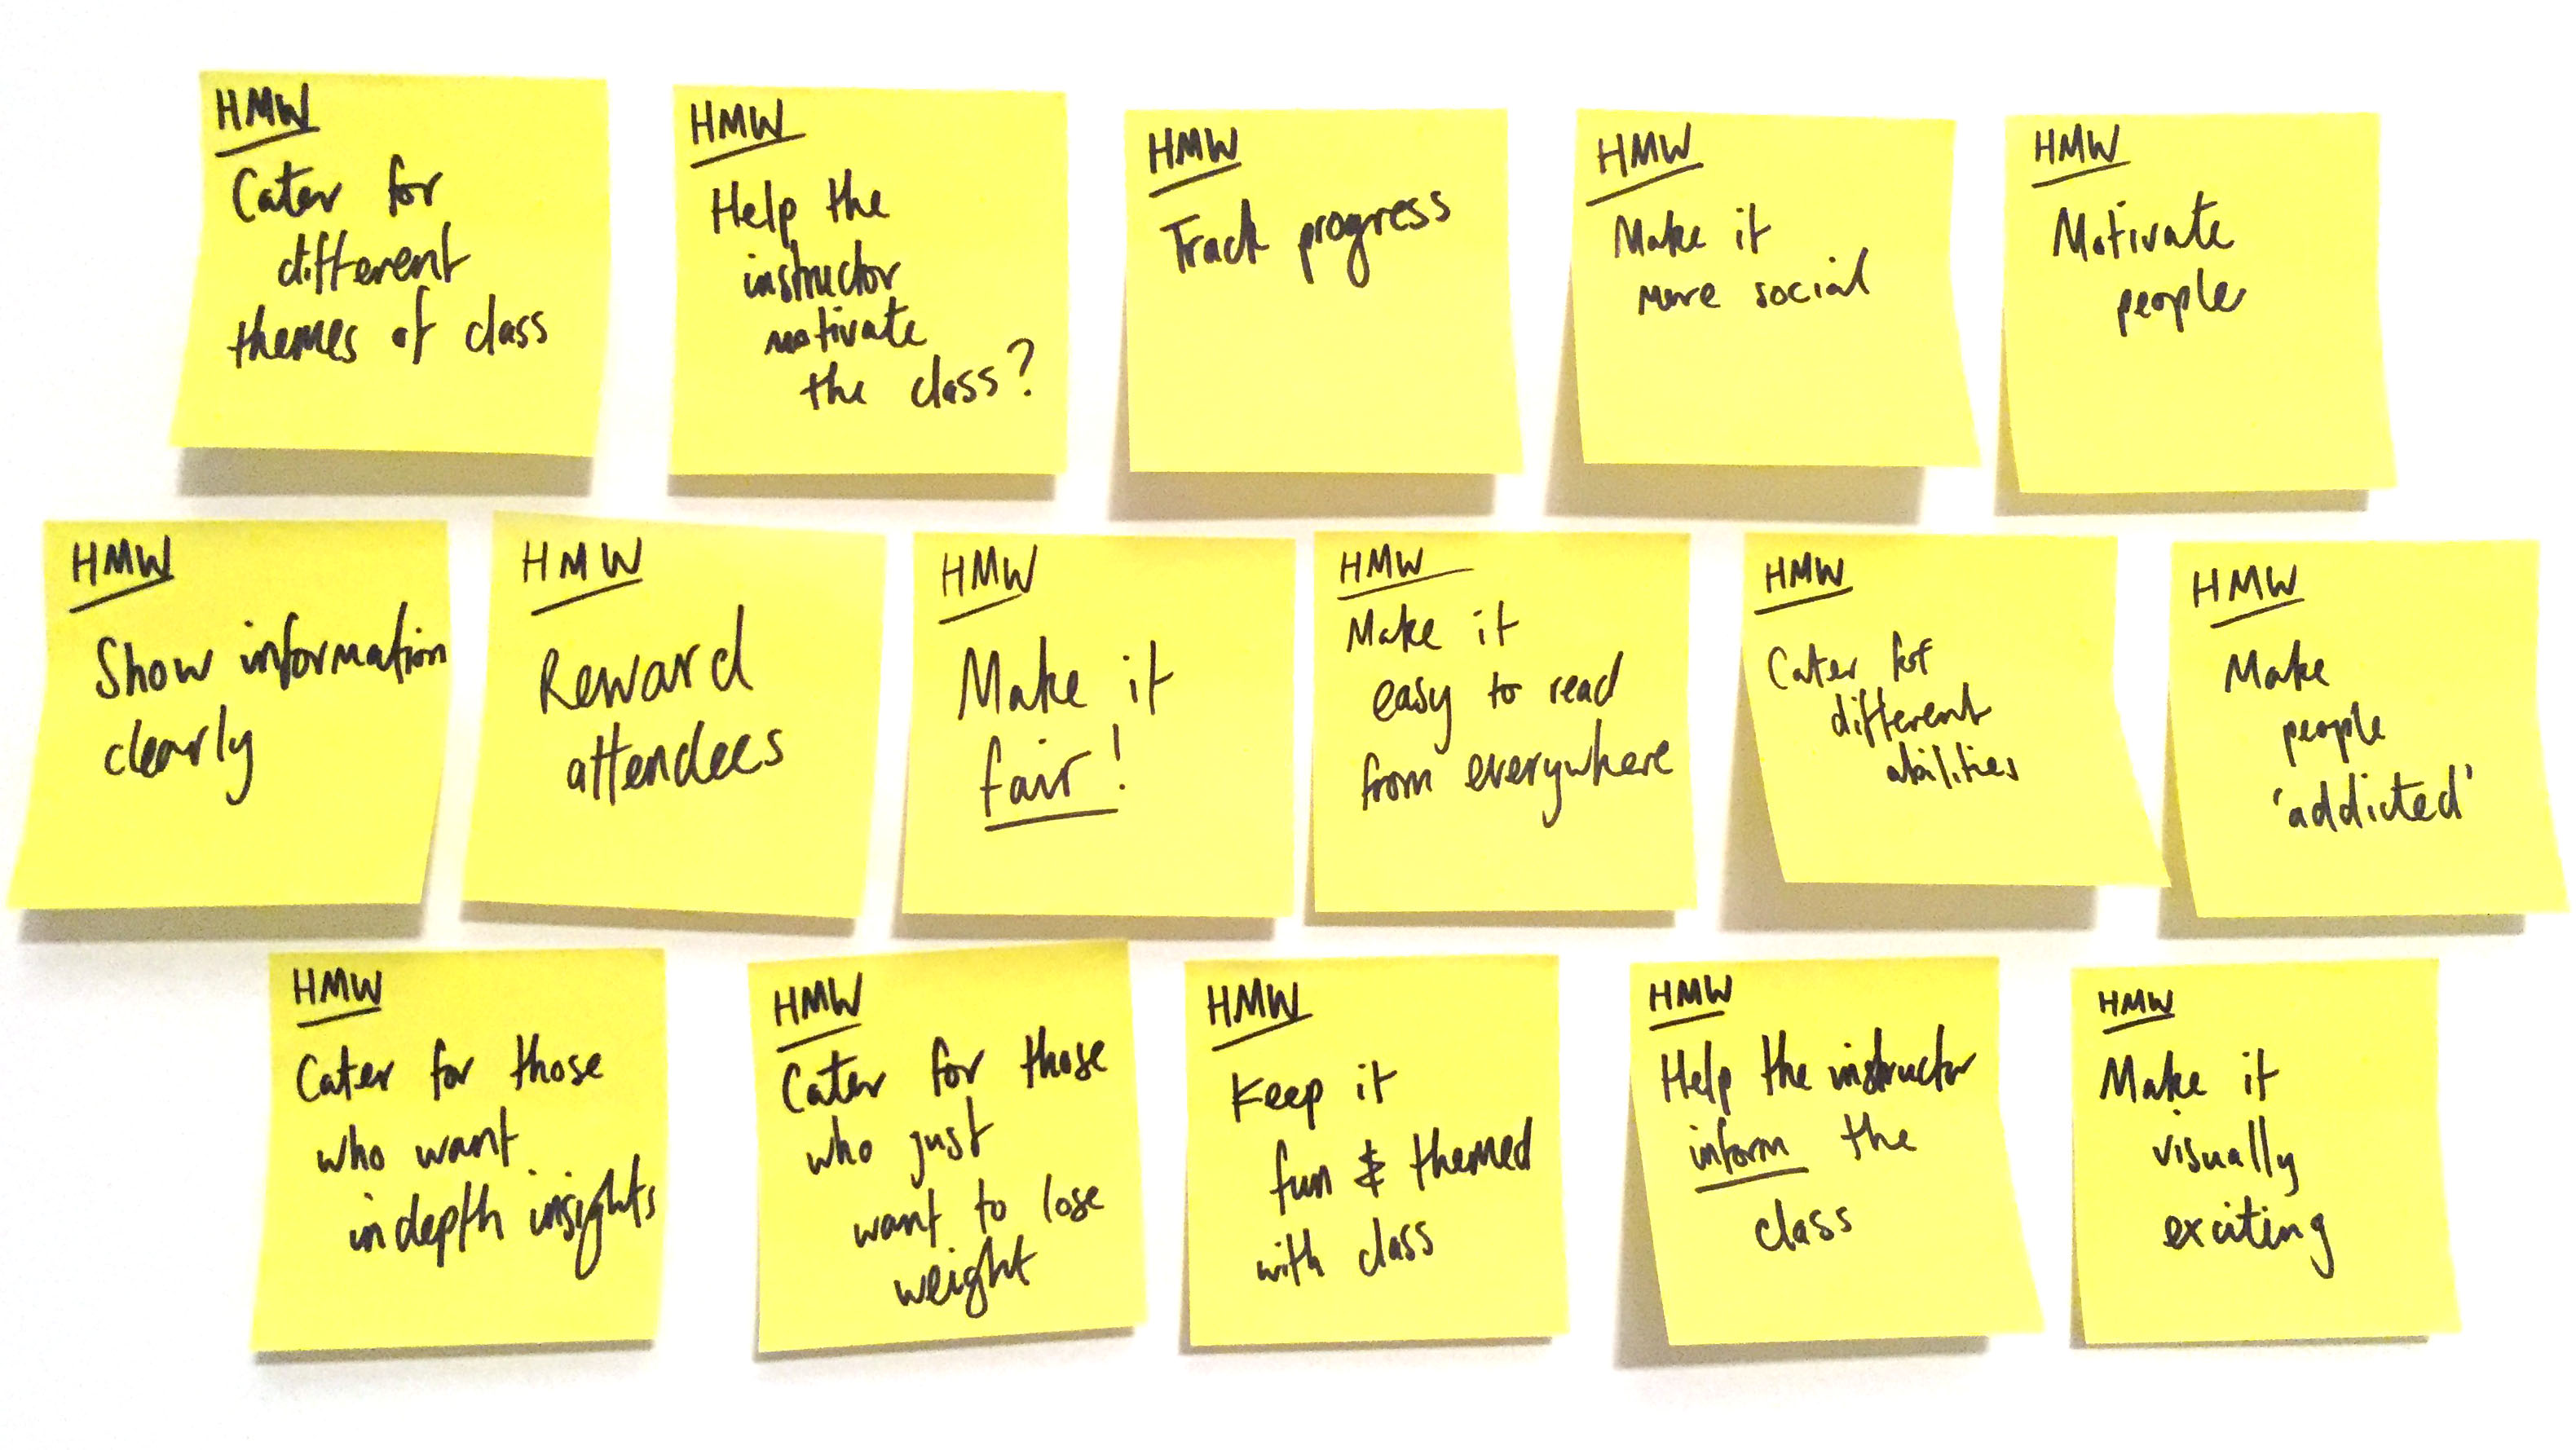 HMW
Cater for
different
themes of class
HMW
Help the
instructor
motivate
the class?
HMW
Track progress
HMW
Make it
more social
HMW
Motivate
people
HMW
Show information
clearly
HMW
Reward
attendees
HMW
Make it
fair!
HMW
Make it
easy to read
from everywhere
HMW
Cater for
different
abilities
HMW
Make
people
'addicted'
HMW
Cater for those
who want
indepth insights
HMW
Cater for those
who just
want to lose
weight
HMW
Keep it
fun & themed
with class
HMW
Help the instructor
inform the
class
HMW
Make it
visually
exciting